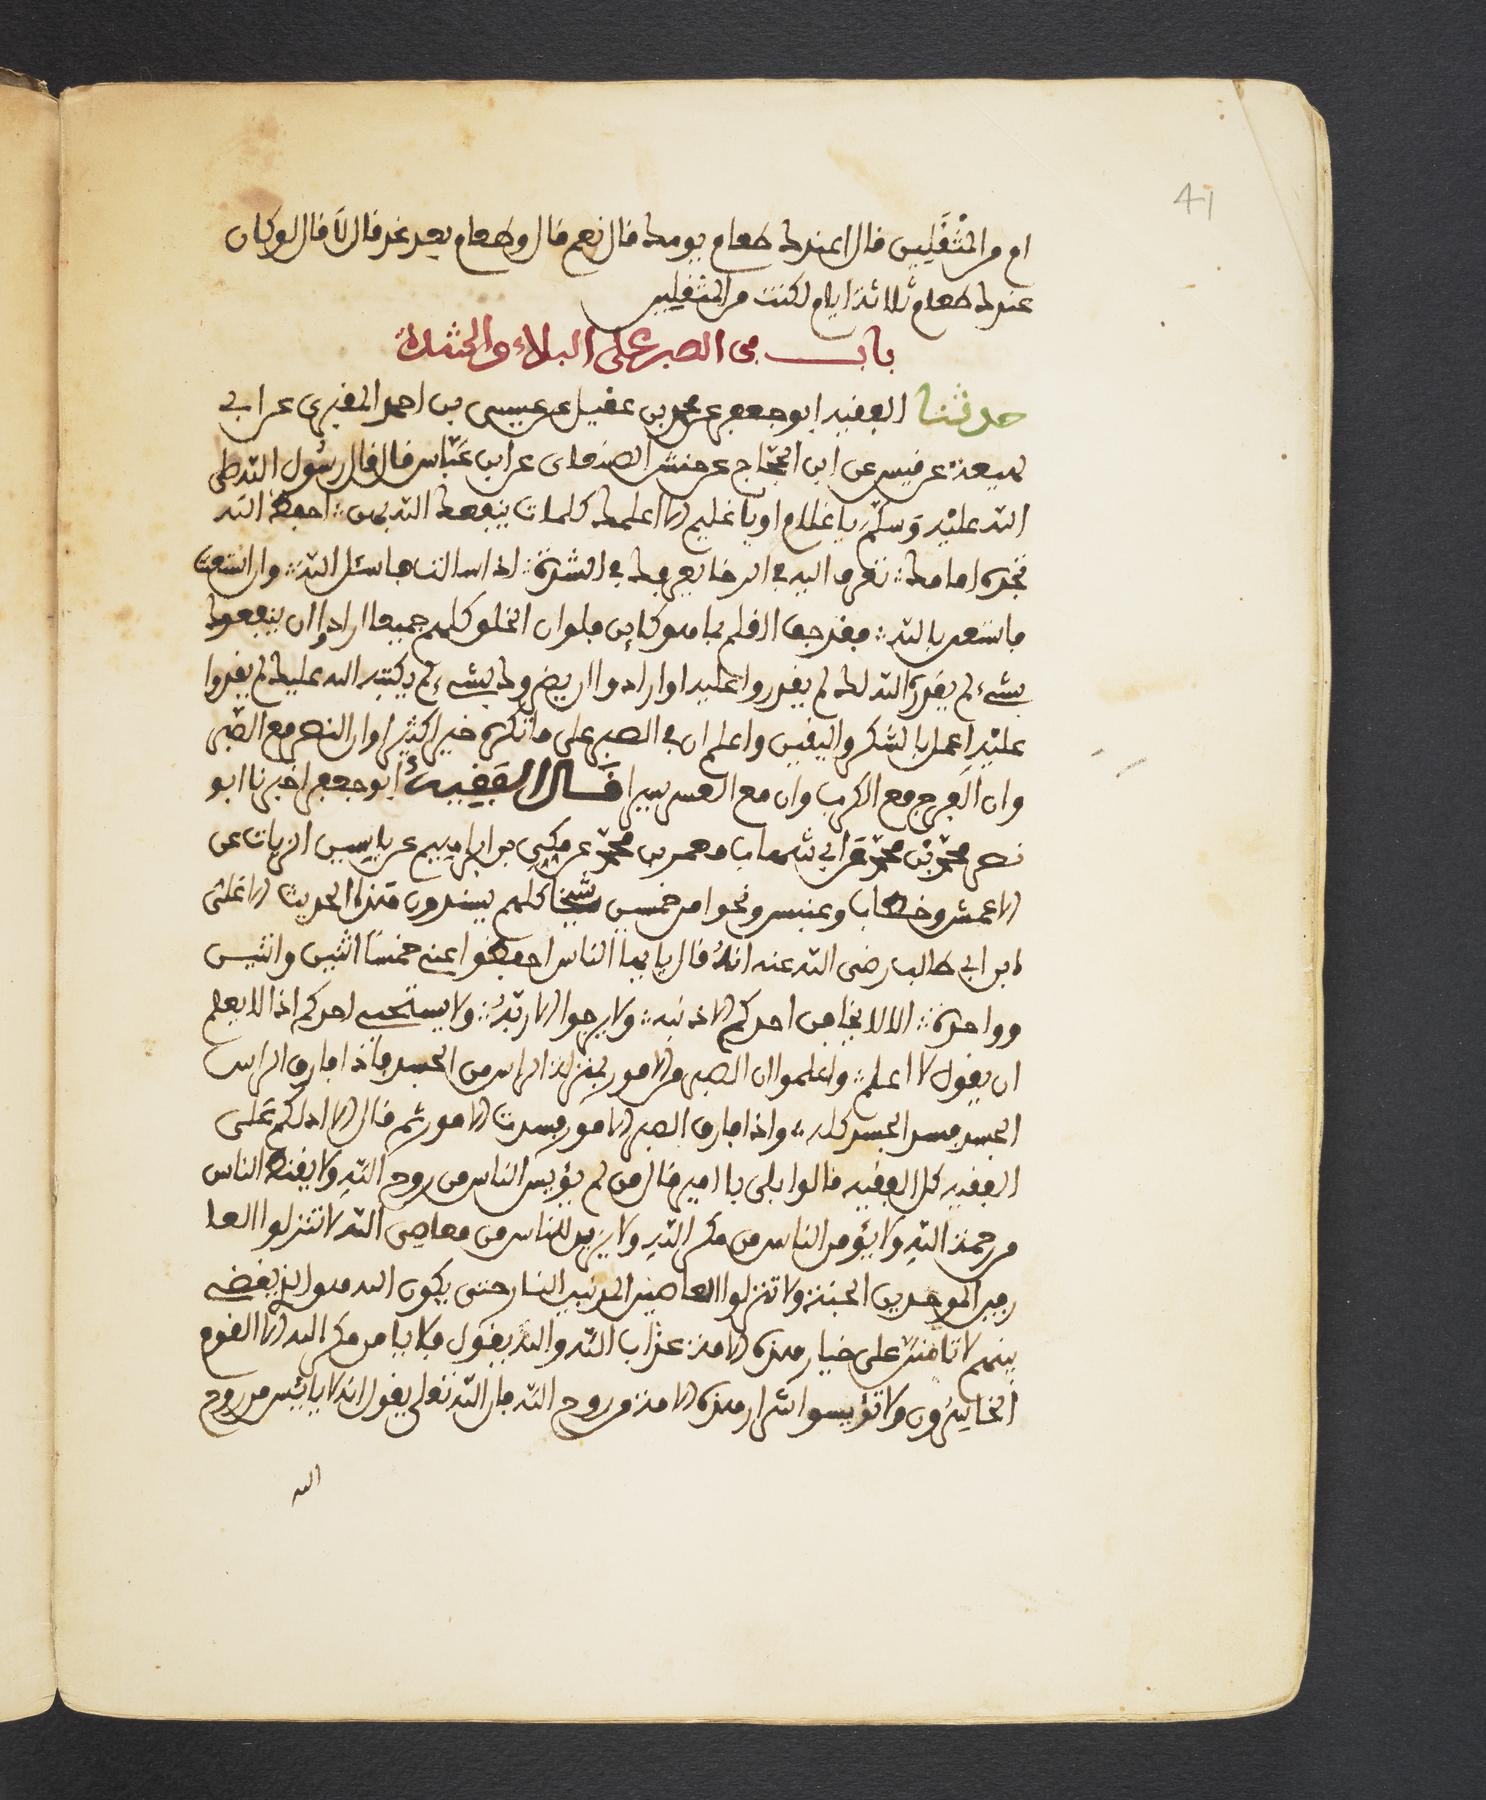 41
ام من المثقلين قال اعندك طعام يومك قال نعم قال وطعام بعد غد قال لا قال لو كان
عندك طعام ثلاثة ايام لكنت من المثقلين
باب في الصبر على البلاء والشدة
حدثنا الفقيه ابو جعفر عن محمد بن عقيل عن عيسى بن احمد المقبرى عن ابى
لهيعة عن قيس عن ابن الحجاج عن حنش الصنعاى عن ابن عباس قال قال رسول الله صلى
الله عليه وسلم يا غلام او يا غليم الا اعلمك كلمات ينفعك الله بهن احفظ الله
تجده امامك تعرف اليه في الرخا يعرفك في الشدة اذا سالت فاسئل الله وان استعنت
فاستعن بالله فقد جف القلم بما هو كاين فلو ان الخلق كلهم جميعا ارادوا ان ينفعوك
بشيء لم يقدره الله لك لم يقدروا عليه او ارادوا ان يضروك بشيء لم يكتبه الله عليك لم يقدروا
عليه اعمل بالشكر واليقين واعلم ان في الصبر على ما تكره خيرا كثيرا وان النصر مع الصبر
وان الفرج مع الكرب وان مع العسر يسرا قال الفقيه ابو جعفر اخبرنا ابو
نصر محمد بن محمد عن ابى شهاب معمر بن محمد عن مكي بن ابراهيم عن ياسين الزيات عن
الاعمش وخطاب وعنبس ونحوا من خمسين شيخا كلهم يسندون هذا الحديث الا على
ابن ابي طالب رضى الله عنه انه قال يايها الناس احفظوا عني خمسا اثنين واثنين
وواحدة الا لا يخافن احدكم الا ذنبه ولا يرجوا الا ربه ولا يستحي احدكم اذا لا يعلم
ان يقول لا اعلم واعلموا ان الصبر من الامور بمنزلة الراس من الجسد فاذا فارق الراس
الجسد فسد الجسد كله واذا فارق الصبر الامور فسدت الامور ثم قال الا ادلكم على
الفقيه كل الفقيه قالوا بلى يا امير قال من لم يؤيس الناس من روح الله ولا يقنط الناس
من رحمة الله ولا يؤمن الناس من مكر الله ولا يزين للناس من معاصى الله لا تنزلوا العا
رفين الموحدين الجنة ولا تنزلوا العاصين المذنبين النار حتى يكون الله هو الذي يقضي
بينهم لا تامنن على خيار هذه الامة عذاب الله والله يقول فلا يامن مكر الله الا القوم
الخاسرون ولا تؤيسوا شرار هذه الامة من روح الله فان الله تعلى يقول انه لا يايئس من روح
الله